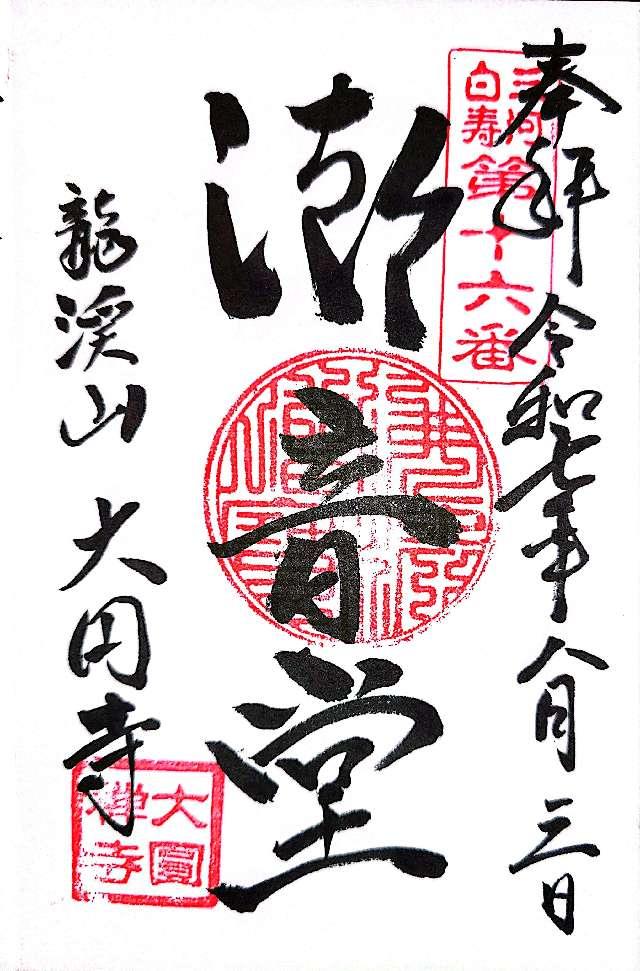 奉拝 令和七年八月三日
三河
白寿
第十六番
潮音堂
龍渓山 大円寺
大圓
禅寺